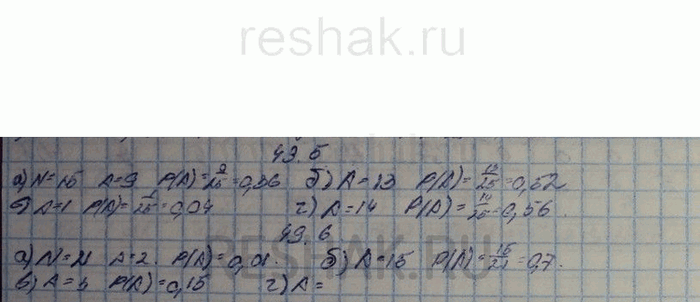 reshak.ru
49.5
а) N=25 A=9 P(A)=9/25=0,36 б) A=13 P(A)=13/25=0,52
в) A=1 P(A)=1/25=0,04 г) A=14 P(A)=14/25=0,56.
49.6
RESHAK.RU
а) N=21 A=2. P(A)=0,01. б) A=15 P(A)=15/21=0,7.
в) A=4 P(A)=0,15 г) A=